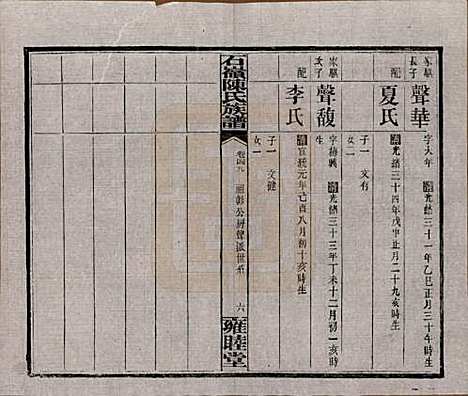 家驥長子
聲華
字大年
清光緒三十一年乙巳正月三十午時生
配
夏氏
清光緒三十四年戊申正月二十九亥時生
子一 文有
女二
家驥次子
聲馥
字梅興
清光緒三十三年丁未十二月初一亥時生
配
李氏
清宣統元年己酉八月初十亥時生
子一 文健
女一
石嶺陳氏族譜
卷四九
公房聲派世系
六
雍睦堂